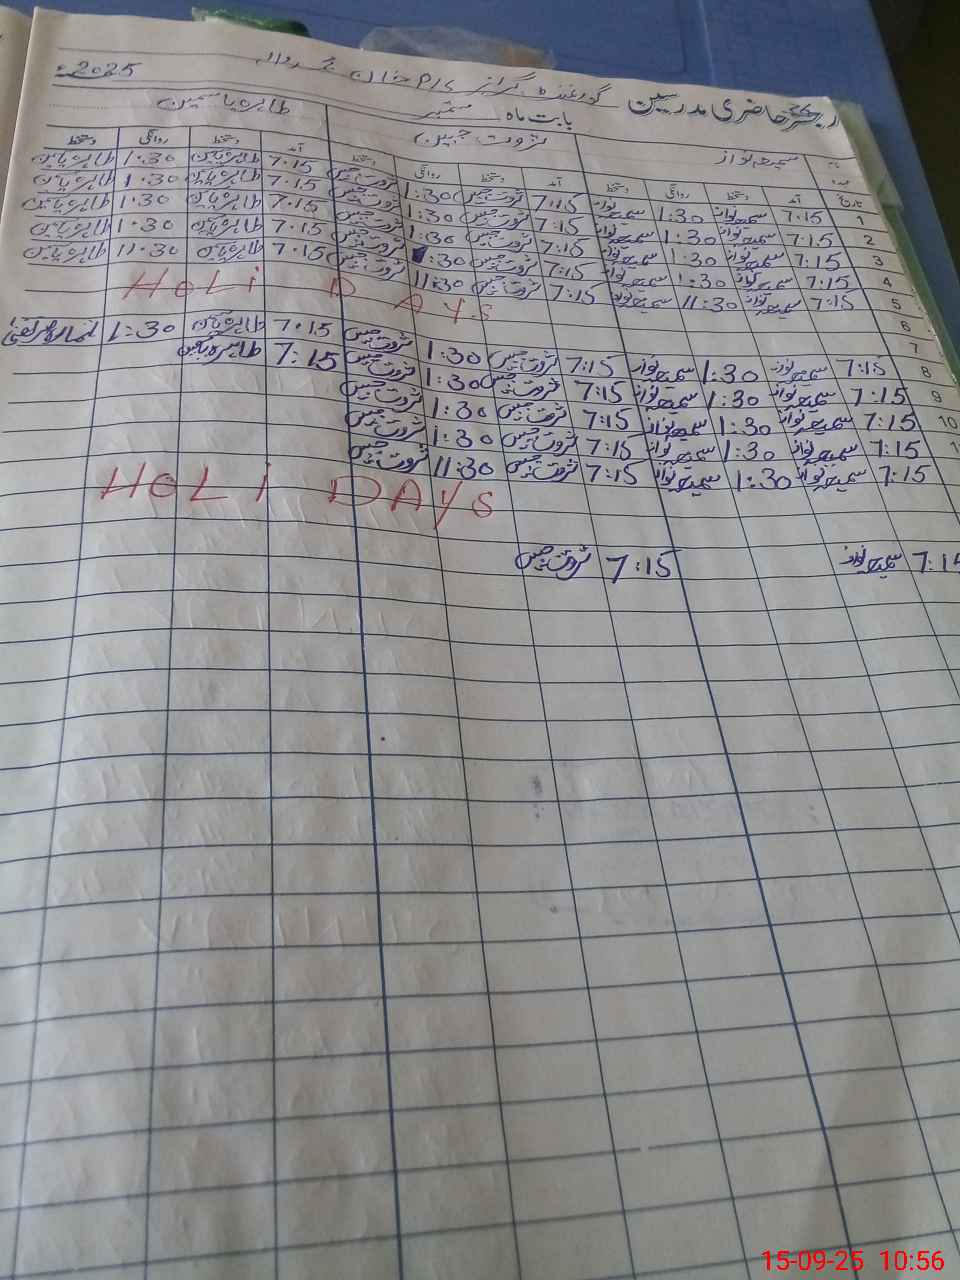 رجسٹر حاضری مدرسین گورنمنٹ گرلز P/S خان گردالہ
بابت ماہ ستمبر 2025ء
سمیعہ نواز ثروت جبین طاہرہ یاسمین
تاریخ آمد دستخط روانگی دستخط آمد دستخط روانگی دستخط آمد دستخط روانگی دستخط
1 7:15 سمیعہ نواز 1:30 سمیعہ نواز 7:15 ثروت جبین 1:30 ثروت جبین 7.15 طاہرہ یاسمین 1.30 طاہرہ یاسمین
2 7:15 سمیعہ نواز 1:30 سمیعہ نواز 7:15 ثروت جبین 1:30 ثروت جبین 7.15 طاہرہ یاسمین 1.30 طاہرہ یاسمین
3 7:15 سمیعہ نواز 1:30 سمیعہ نواز 7:15 ثروت جبین 1:30 ثروت جبین 7.15 طاہرہ یاسمین 1.30 طاہرہ یاسمین
4 7:15 سمیعہ نواز 1:30 سمیعہ نواز 7:15 ثروت جبین 1:30 ثروت جبین 7.15 طاہرہ یاسمین 1.30 طاہرہ یاسمین
5 7:15 سمیعہ نواز 11:30 سمیعہ نواز 7:15 ثروت جبین 11:30 ثروت جبین 7.15 طاہرہ یاسمین 11.30 طاہرہ یاسمین
6 HoLi DAYs
7
8 7:15 سمیعہ نواز 1:30 سمیعہ نواز 7:15 ثروت جبین 1:30 ثروت جبین 7.15 طاہرہ یاسمین 1:30
9 7:15 سمیعہ نواز 1:30 سمیعہ نواز 7:15 ثروت جبین 1:30 ثروت جبین 7:15 طاہرہ یاسمین
10 7:15 سمیعہ نواز 1:30 سمیعہ نواز 7:15 ثروت جبین 1:30 ثروت جبین
7:15 سمیعہ نواز 1:30 سمیعہ نواز 7:15 ثروت جبین 1:30 ثروت جبین
7:15 سمیعہ نواز 1:30 سمیعہ نواز 7:15 ثروت جبین 11:30 ثروت جبین
HoLi DAYs
7:15 سمیعہ نواز 7:15 ثروت جبین
15-09-25 10:56